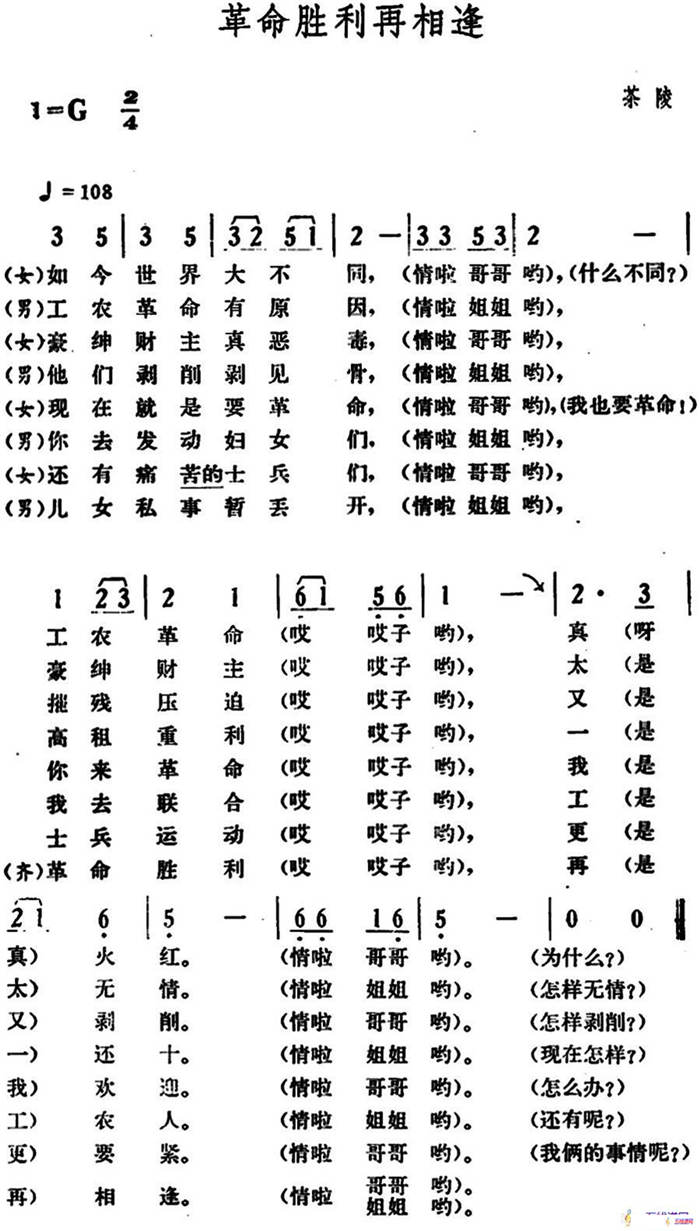 革命胜利再相逢
1=G 2/4
茶陵
♩=108
3 5 | 3 5 | 32 51 | 2 — | 33 53 | 2 — |
(女)如今世界大不同，(情啦 哥哥 哟)，(什么不同？)
(男)工农革命有原因，(情啦 姐姐 哟)，
(女)豪绅财主真恶毒，(情啦 哥哥 哟)，
(男)他们剥削剥见骨，(情啦 姐姐 哟)，
(女)现在就是要革命，(情啦 哥哥 哟)，(我也要革命！)
(男)你去发动妇女们，(情啦 姐姐 哟)，
(女)还有痛苦的士兵们，(情啦 哥哥 哟)，
(男)儿女私事暂丢开，(情啦 姐姐 哟)，
1 23 | 2 1 | 61 56 | 1 — | 2· 3 |
工农革命(哎 哎子 哟)，真(呀
豪绅财主(哎 哎子 哟)，太(是
摧残压迫(哎 哎子 哟)，又(是
高租重利(哎 哎子 哟)，一(是
你来革命(哎 哎子 哟)，我(是
我去联合(哎 哎子 哟)，工(是
士兵运动(哎 哎子 哟)，更(是
(齐)革命胜利(哎 哎子 哟)，再(是
21 6 | 5 — | 66 16 | 5 — | 0 0 ‖
真)火红。(情啦 哥哥 哟)。(为什么？)
太)无情。(情啦 姐姐 哟)。(怎样无情？)
又)剥削。(情啦 哥哥 哟)。(怎样剥削？)
一)还十。(情啦 姐姐 哟)。(现在怎样？)
我)欢迎。(情啦 哥哥 哟)。(怎么办？)
工)农人。(情啦 姐姐 哟)。(还有呢？)
更)要紧。(情啦 哥哥 哟)。(我俩的事情呢？)
再)相逢。(情啦 哥哥 姐姐 哟)。